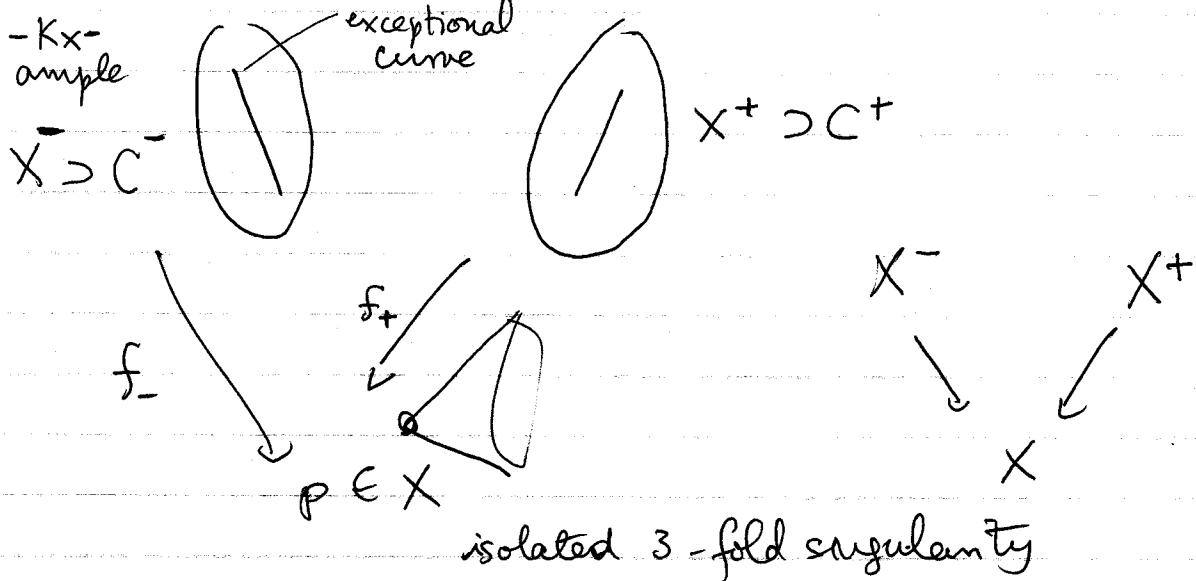 -Kx-
ample
exceptional
curve
X⁻ ⊃ C⁻
X⁺ ⊃ C⁺
f₋
f₊
X⁻ X⁺
p ∈ X
X
isolated 3-fold singularity